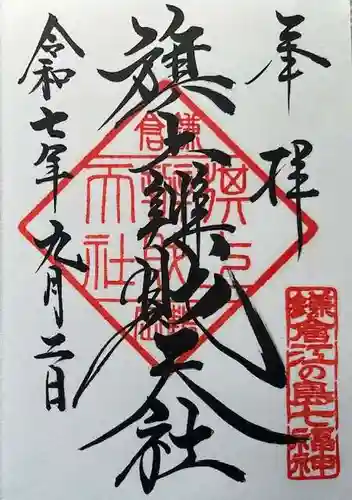 奉拝
旗上辨財天社
令和七年九月二日
鎌倉
旗上
辨財
天社
鎌倉江の島七福神